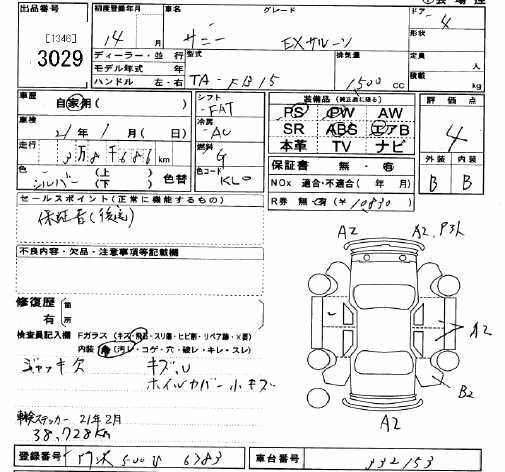 出品番号 初度登録年月 車名 グレード ドアー
[1346] 14 月 サニー EXサルーン 4
3029 形状
ディーラー・並行 型式 排気量 定員 人
モデル年式 年 積載 kg
ハンドル 左・右 TA-FB15 1500 CC
車歴 自家用( ) シフト FAT 装備品(純正品に限る) 評価点
PS PW AW 4
車検 21年1月(日) 冷房 AC SR ABS エアB
本革 TV ナビ
走行 3万8千686km 燃料 G 外装 内装
保証書 無・有 B B
色 シルバー (上) (下) 色替 色コード KL0 NOx 適合・不適合( 年 月)
セールスポイント(正常に機能するもの) R券 無・有(¥10830)
保証書(後送)
A2 A2.P3ル
不良内容・欠品・注意事項等記載欄
修復歴 箇
有 所
A2
検査員記入欄 Fガラス(キズ・飛石・スリ傷・ヒビ割・リペア跡・X要)
内装(汚レ・コゲ・穴・破レ・キレ・スレ)
ジャッキ欠 キズ,U
ホイルカバー小キズ B2
車検ステッカー 21年2月 A2
38,728km
登録番号 500 6783 車台番号 332153